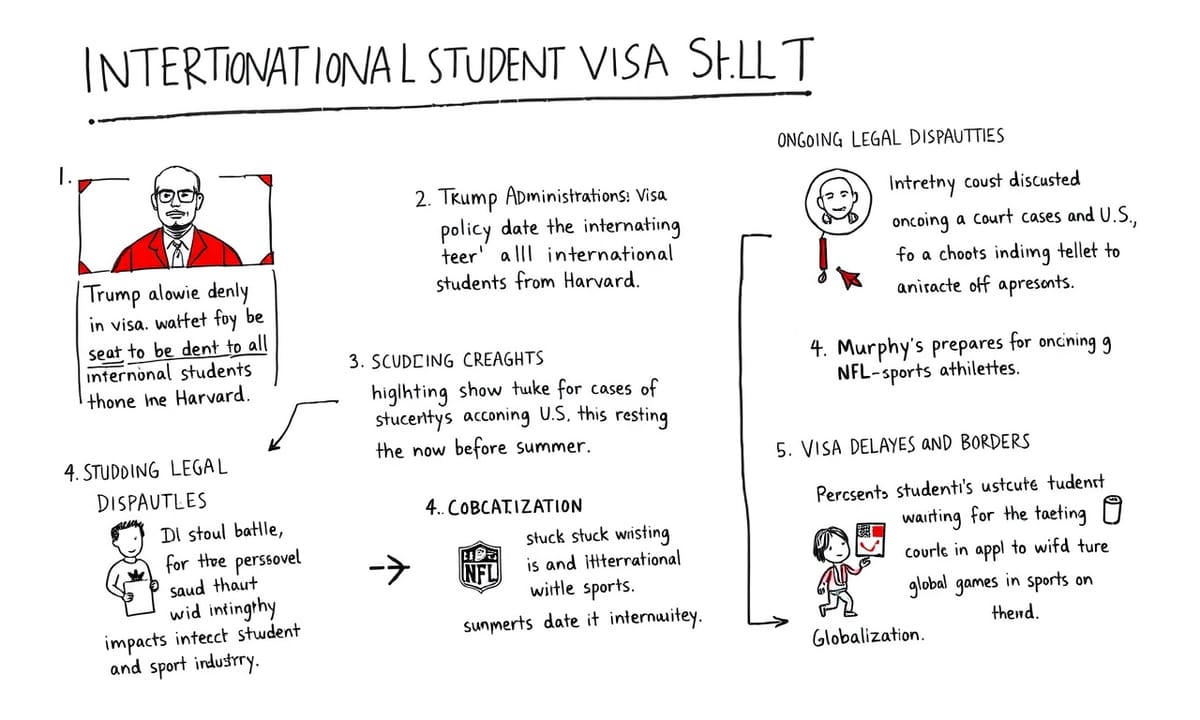 INTERTIONATIONAL STUDENT VISA St.LL T
1.
Trump alowie denly
in visa. watfet foy be
seat to be dent to all
internonal students
thone Ine Harvard.
2. Trump Administrations: Visa
policy date the internatiing
teer' alll international
students from Harvard.
3. SCUDCING CREAGHTS
higlhting show tuke for cases of
stucentys acconing U.S, this resting
the now before summer.
4. STUDDING LEGAL
DISPAUTLES
DI stoul batlle,
for thoe perssovel
saud thaut
wid intingthy
impacts inteect student
and sport industrry.
4.. COBCATIZATION
NFL
stuck stuck wisting
is and ittterrational
wiitle sports.
sunmerts date it internwitey.
ONGOING LEGAL DISPAUTTIES
Intretny coust discusted
oncoing a court cases and U.S.,
fo a choots indiing tellet to
aniracte off apresonts.
4. Murphy's prepares for oncining g
NFL-sports athilettes.
5. VISA DELAYES AND BORDERS
Percsents studenti's ustcute tudenst
waiting for the taeting
courle in appl to wifd ture
global games in sports on
thend.
Globalization.